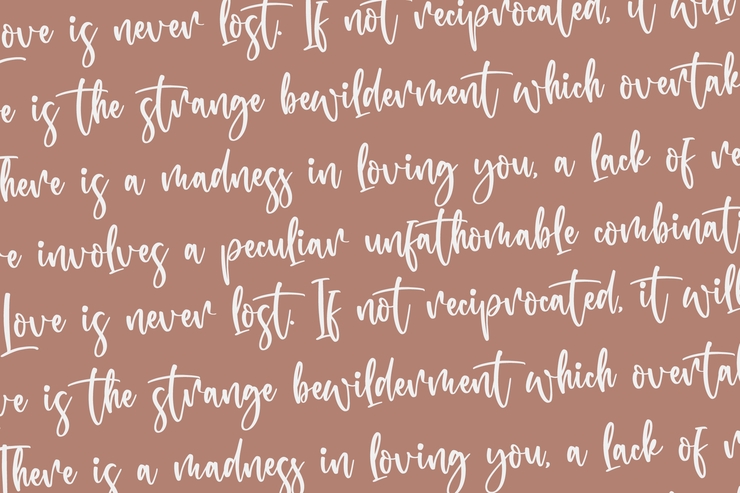 ove is never lost. If not reciprocated, it will
e is the strange bewilderment which overtak
here is a madness in loving you, a lack of re
e involves a peculiar unfathomable combinati
Love is never lost. If not reciprocated, it will
ve is the strange bewilderment which overta
There is a madness in loving you, a lack of r